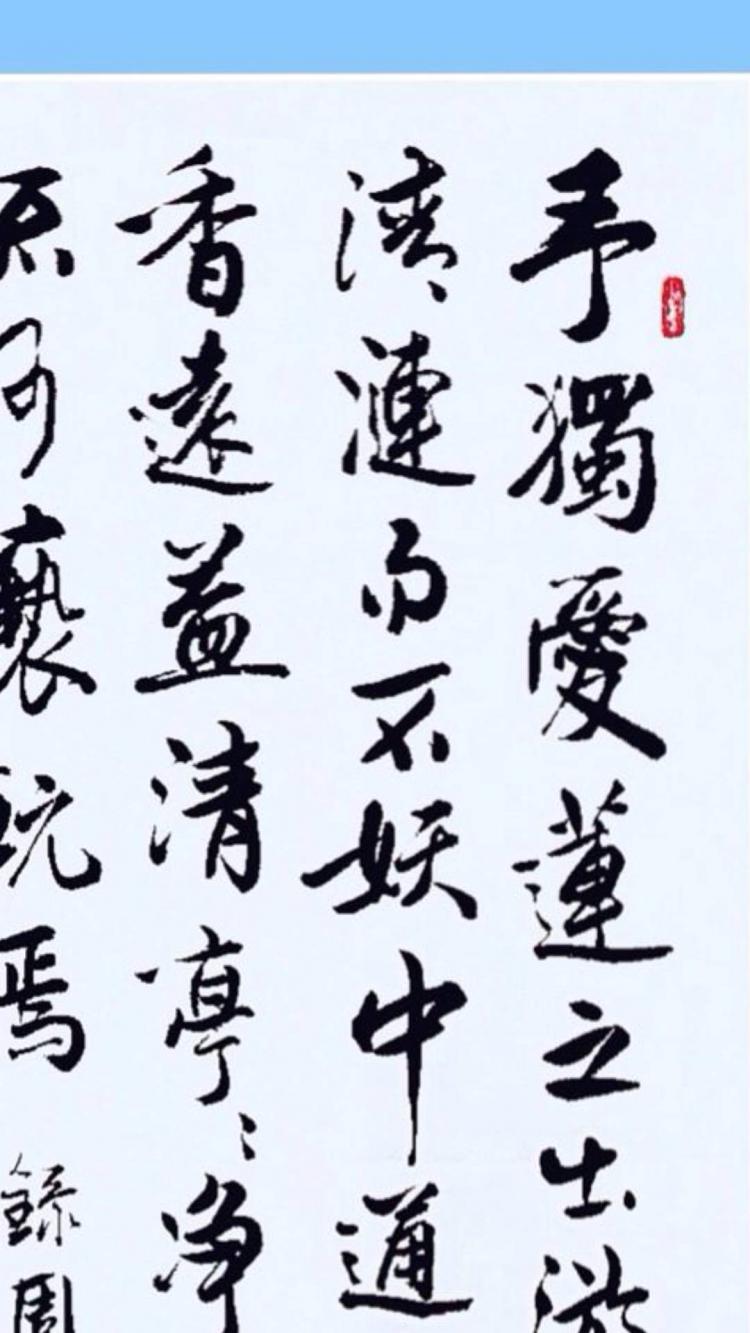 予獨愛蓮之出淤
清漣而不妖中通
香遠益清亭〻净
不可褻玩焉
錄周